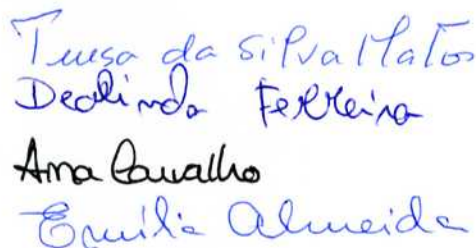 Teresa da Silva Matos
Deolinda Ferreira
Ana Carvalho
Emília Almeida